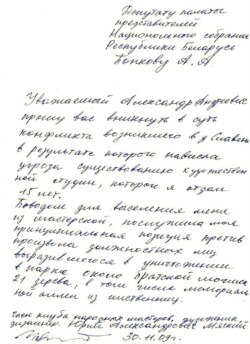 Депутату палаты
представителей
Национального собрания
Республики Беларусь
Попкову А. А
Уважаемый Александр Андреевич
прошу вас вникнуть в суть
конфликта возникшего в д Славени
в результате которого нависла
угроза существованию художествен
ной студии, которой я отдал
15 лет.
Поводом для выселения меня
из мастерской, послужила моя
принципиальная позиция против
произвола должностных лиц
выразившегося в уничтожении
в парке около братской могилы
21 дерева, в том числе мемориаль
ной аллеи из лиственниц.
Член клуба народных мастеров, художник-
дизайнер Юрий Александрович Мацкин
30.11.09г.